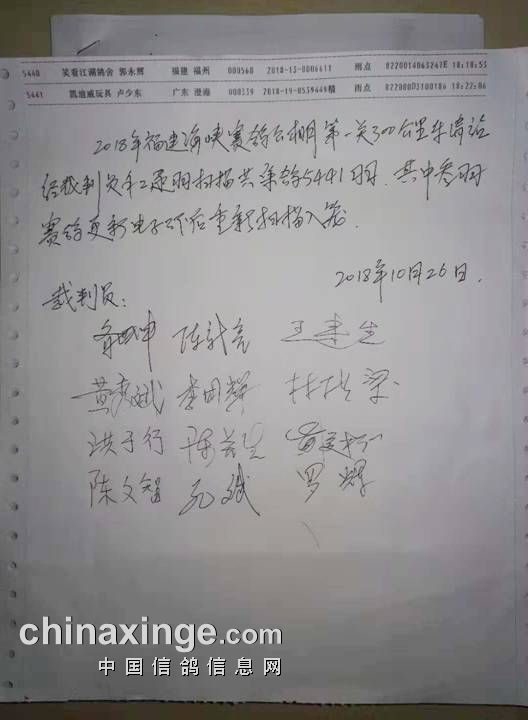 5440 笑看江湖鸽舍 郭永辉 福建 福州 000560 2018-13-0006611 雨点 0220014063247E 18:18:53
5441 凯迪威玩具 卢少东 广东 澄海 000339 2018-19-0539449精 雨点 822000D3100186 18:22:06
2018年福建海峡赛鸽公棚第一关300公里
经裁判员 逐羽扫描共集鸽5441羽.其中叁羽
赛鸽更新电子环后重新扫描入笼.
2018年10月26日.
裁判员:
陈新亮 王建生
黄 娥 李明辉 林 梁
洪于行 陈
陈文智 孔斌 罗辉
chinaxinge.com
中国信鸽信息网